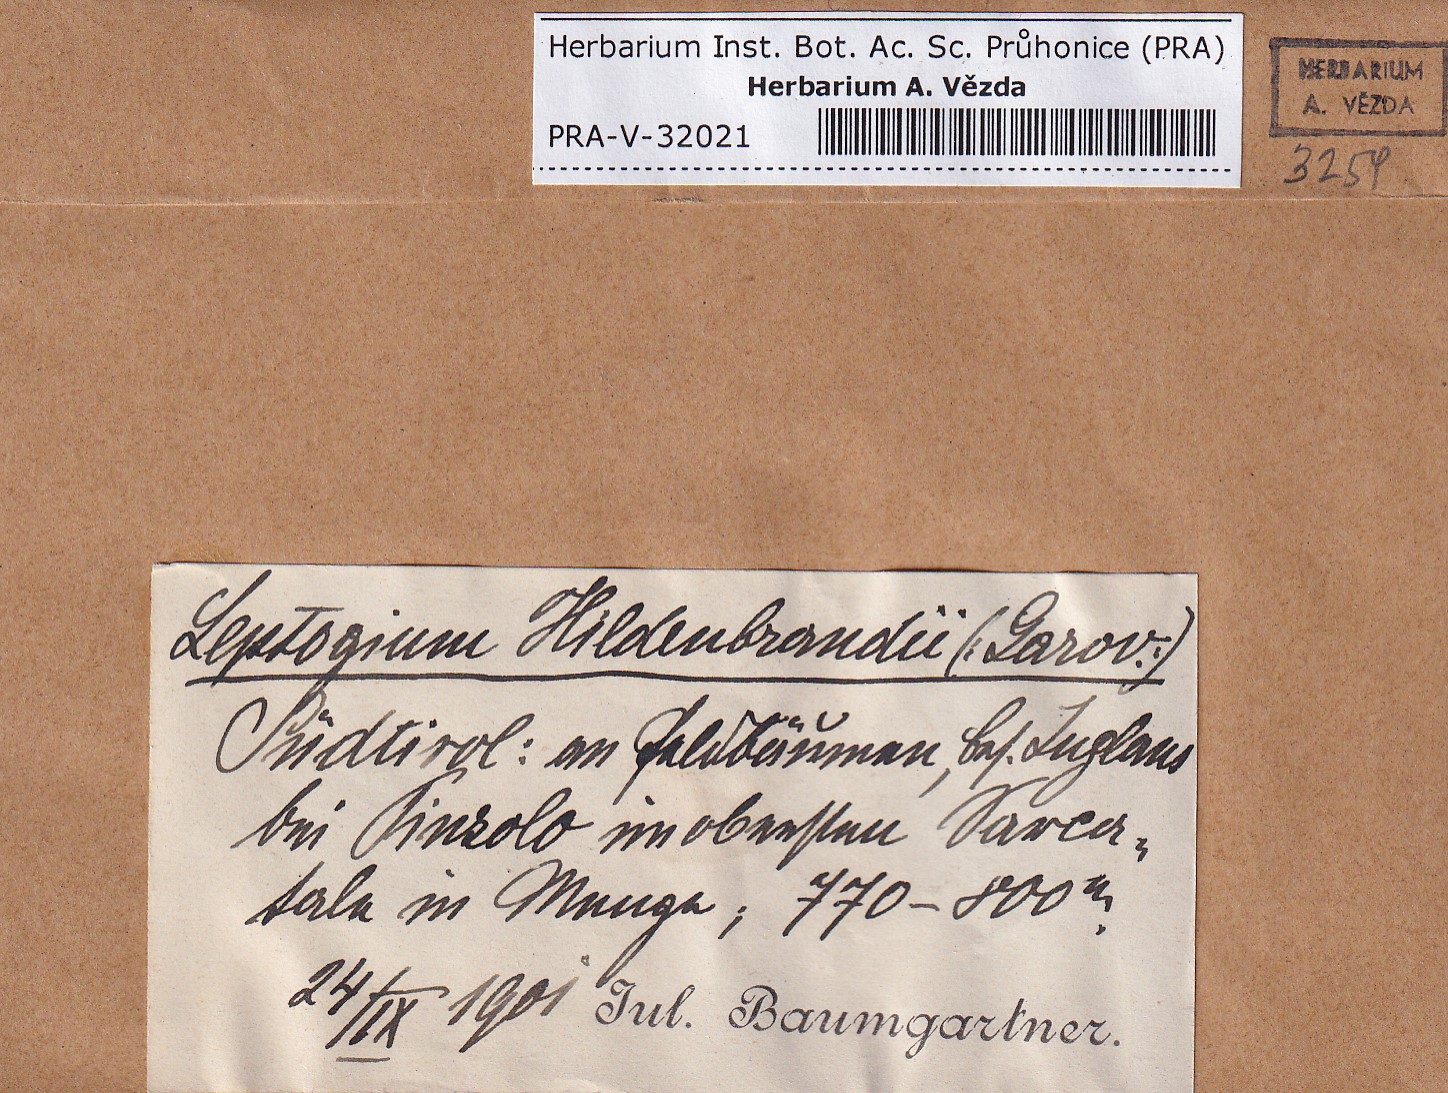 Herbarium Inst. Bot. Ac. Sc. Průhonice (PRA)
Herbarium A. Vězda
PRA-V-32021
HERBARIUM
A. VĚZDA
3254
Leptogium Hildenbrandii (:Garov.:)
Südtirol: an Feldbäumen, bes. Juglans
bei Pinzolo im obersten Sarca„
tale in Menge; 770–800 m.
24/IX 1901 Jul. Baumgartner.